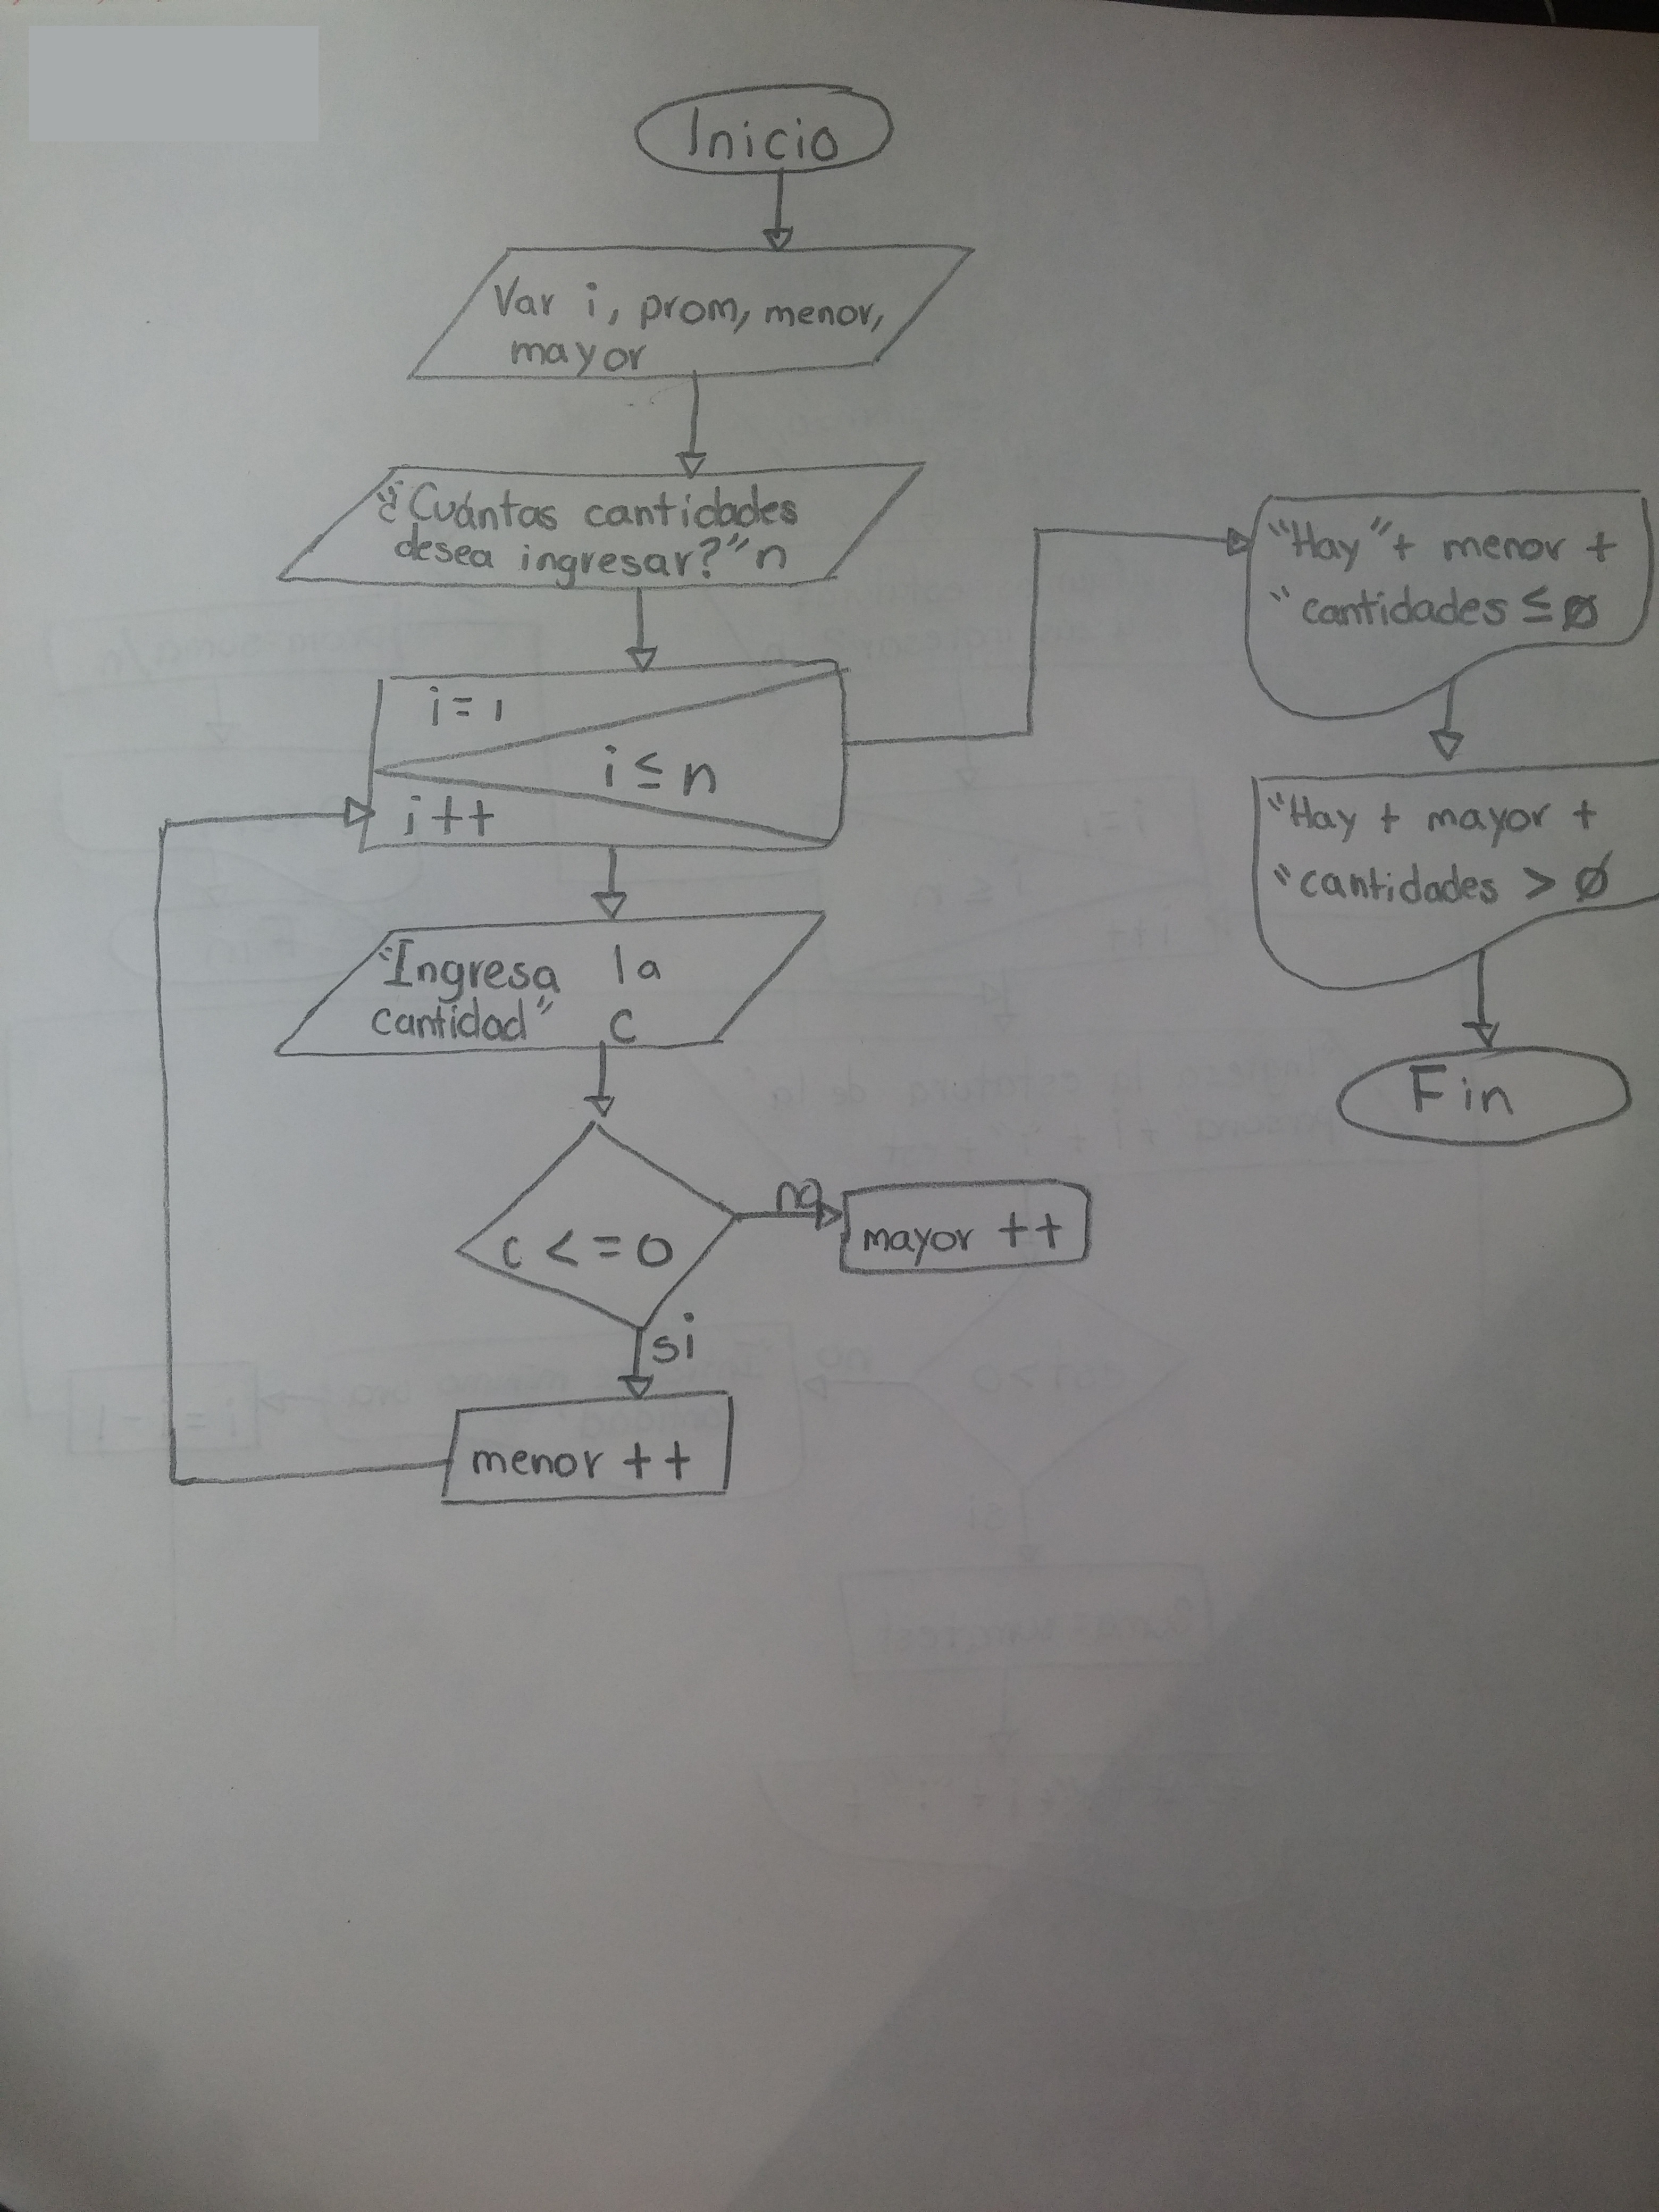 Inicio
Var i, prom, menor,
mayor
"¿Cuántas cantidades
desea ingresar?" n
i=1
i ≤ n
i++
"Ingresa la
cantidad" C
c <= 0
no
mayor ++
si
menor ++
"Hay" + menor +
"cantidades ≤ Ø
"Hay + mayor +
"cantidades > Ø
Fin